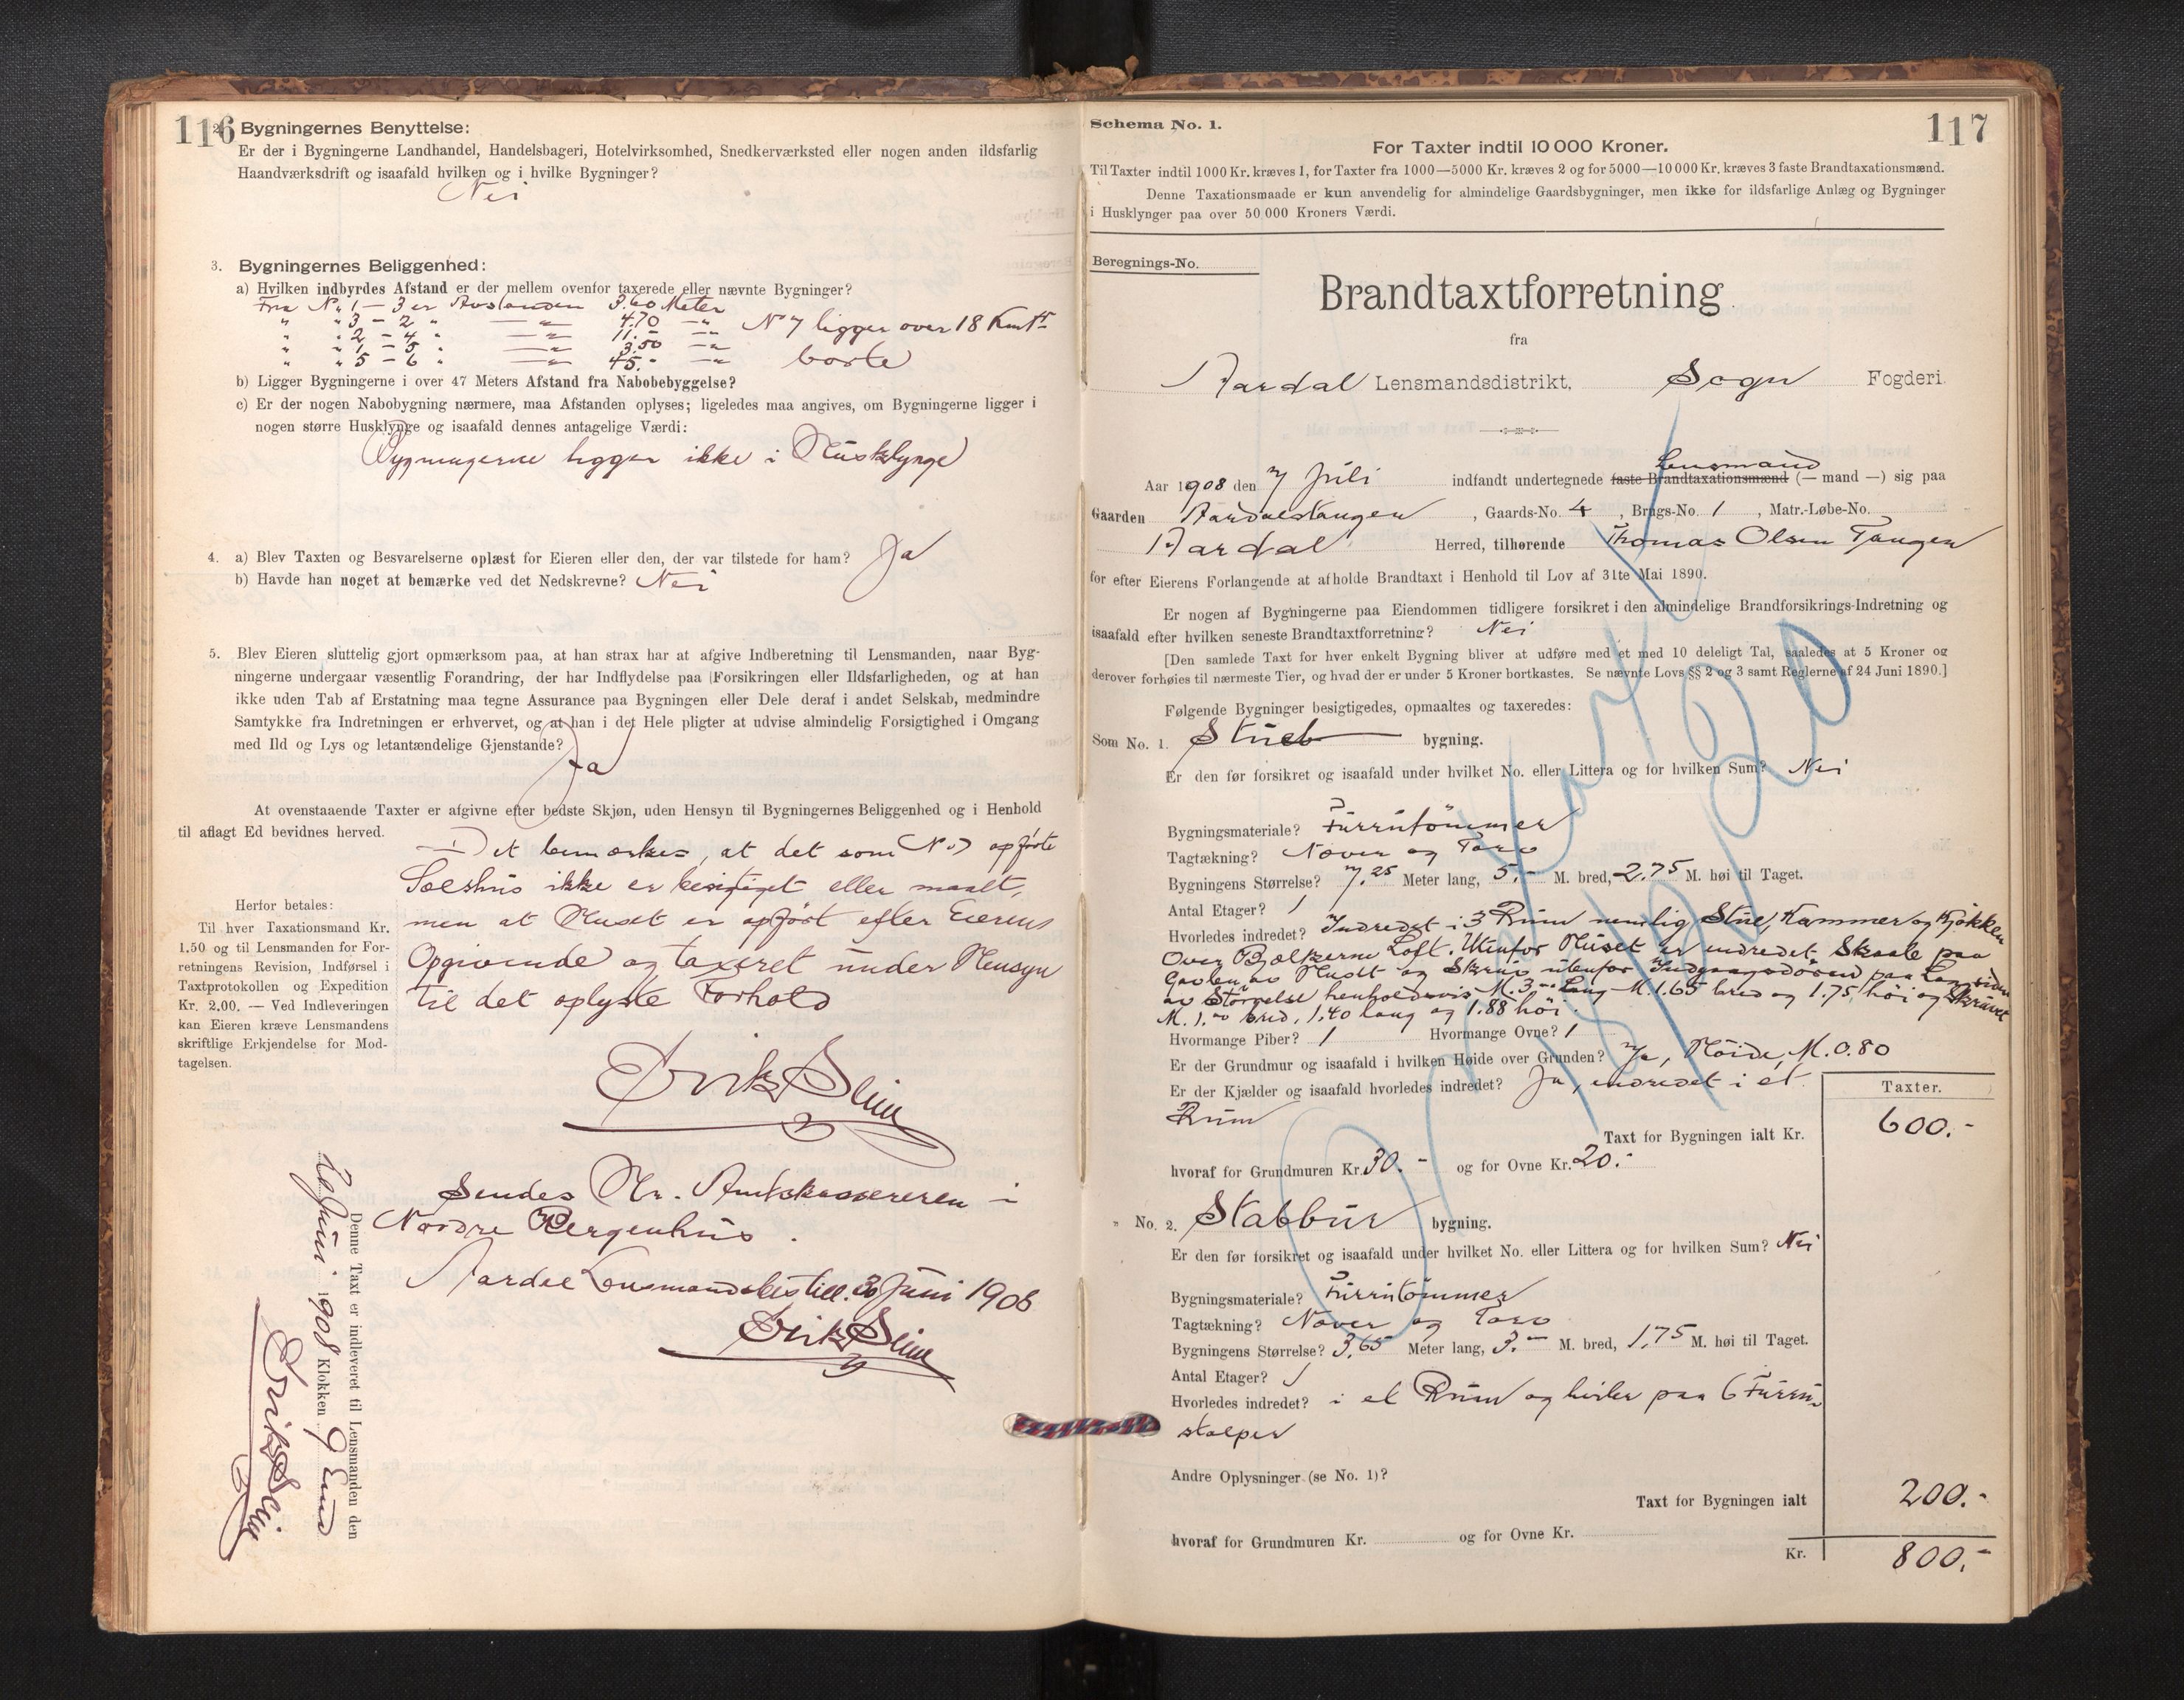 116
2. Bygningernes Benyttelse:
Er der i Bygningerne Landhandel, Handelsbageri, Hotelvirksomhed, Snedkerværksted eller nogen anden ildsfarlig
Haandværksdrift og isaafald hvilken og i hvilke Bygninger?
Nei
3. Bygningernes Beliggenhed:
a) Hvilken indbyrdes Afstand er der mellem ovenfor taxerede eller nævnte Bygninger?
Fra No 1 – 3 er Avstanden 3.60 Meter
" " 3 – 2 " — " — 4.70 — " No 7 ligger over 18 Kmtr
" " 2 – 4 " — " — 11.– — "
" " 1 – 5 " — " — 3.50 — " borte
" " 5 – 6 " — " — 45.– — "
b) Ligger Bygningerne i over 47 Meters Afstand fra Nabobebyggelse?
c) Er der nogen Nabobygning nærmere, maa Afstanden oplyses; ligeledes maa angives, om Bygningerne ligger i
nogen større Husklynge og isaafald dennes antagelige Værdi:
Bygningerne ligger ikke i Husklynge
4. a) Blev Taxten og Besvarelserne oplæst for Eieren eller den, der var tilstede for ham? Ja
b) Havde han noget at bemærke ved det Nedskrevne? Nei
5. Blev Eieren sluttelig gjort opmærksom paa, at han strax har at afgive Indberetning til Lensmanden, naar Byg-
ningerne undergaar væsentlig Forandring, der har Indflydelse paa Forsikringen eller Ildsfarligheden, og at han
ikke uden Tab af Erstatning maa tegne Assurance paa Bygningen eller Dele deraf i andet Selskab, medmindre
Samtykke fra Indretningen er erhvervet, og at han i det Hele pligter at udvise almindelig Forsigtighed i Omgang
med Ild og Lys og letantændelige Gjenstande?
Ja
At ovenstaaende Taxter er afgivne efter bedste Skjøn, uden Hensyn til Bygningernes Beliggenhed og i Henhold
til aflagt Ed bevidnes herved.
Det bemærkes, at det som No 7 opførte
Sælshus ikke er besigtiget eller maalt,
men at Huset er opført efter Eierens
Opgivende og taxeret under Hensyn
til det oplyste Forhold
Herfor betales:
Til hver Taxationsmand Kr.
1.50 og til Lensmanden for For-
retningens Revision, Indførsel i
Taxtprotokollen og Expedition
Kr. 2.00. — Ved Indleveringen
kan Eieren kræve Lensmandens
skriftlige Erkjendelse for Mod-
tagelsen.
Erik Slim
Sendes Hr. Amtskassereren i
Nordre Bergenhus.
Aardal Lensmandsbestill. 30 Juni 1908
Erik Slim
Denne Taxt er indleveret til Lensmanden den
Juni 1908 Klokken 9 Em
Erik Slim
117
Schema No. 1.
For Taxter indtil 10 000 Kroner.
Til Taxter indtil 1000 Kr. kræves 1, for Taxter fra 1000—5000 Kr. kræves 2 og for 5000—10 000 Kr. kræves 3 faste Brandtaxationsmænd.
Denne Taxationsmaade er kun anvendelig for almindelige Gaardsbygninger, men ikke for ildsfarlige Anlæg og Bygninger
i Husklynger paa over 50 000 Kroners Værdi.
Beregnings-No.
Brandtaxtforretning
fra
Aardal Lensmandsdistrikt, Sogn Fogderi.
Lensmand
Aar 1908 den 7 Juli indfandt undertegnede faste Brandtaxationsmænd (— mand —) sig paa
Gaarden Aardalstangen, Gaards-No. 4, Brugs-No. 1, Matr.-Løbe-No.
Aardal Herred, tilhørende Thomas Olsen Tangen
for efter Eierens Forlangende at afholde Brandtaxt i Henhold til Lov af 31te Mai 1890.
Er nogen af Bygningerne paa Eiendommen tidligere forsikret i den almindelige Brandforsikrings-Indretning og
isaafald efter hvilken seneste Brandtaxtforretning? Nei
[Den samlede Taxt for hver enkelt Bygning bliver at udføre med et med 10 deleligt Tal, saaledes at 5 Kroner og
derover forhøies til nærmeste Tier, og hvad der er under 5 Kroner bortkastes. Se nævnte Lovs §§ 2 og 3 samt Reglerne af 24 Juni 1890.]
Følgende Bygninger besigtigedes, opmaaltes og taxeredes:
Som No. 1. Stueb bygning.
Er den før forsikret og isaafald under hvilket No. eller Littera og for hvilken Sum? Nei
Bygningsmateriale? Furrutømmer
Tagtækning? Næver og Torv
Bygningens Størrelse? 7,25 Meter lang, 5,– M. bred, 2,75 M. høi til Taget.
Antal Etager? 1
Hvorledes indredet? Indredet i 3 Rum nemlig Stue, Kammer og Kjøkken
Over Bjælkerne Loft. Utenfor Huset er indredet Skaale paa
Gavlen av Huset og Skruv utenfor Indgangsdøren paa Langsiden
av Størrelse henholdsvis M. 3,– Lang M. 1.65 bred og 1.75 høi og Skruvet
M. 1.– bred, 1.40 lang og 1.88 høi.
Hvormange Piber? 1 Hvormange Ovne? 1
Er der Grundmur og isaafald i hvilken Høide over Grunden? Ja, Høide, M. 0.80
Er der Kjælder og isaafald hvorledes indredet? Ja, indredet i et
Rum
Taxter.
Taxt for Bygningen ialt Kr. 600.–
hvoraf for Grundmuren Kr. 30.– og for Ovne Kr. 20.–
" No. 2. Stabbur bygning.
Er den før forsikret og isaafald under hvilket No. eller Littera og for hvilken Sum? Nei
Bygningsmateriale? Furrutømmer
Tagtækning? Næver og Torv
Bygningens Størrelse? 3,65 Meter lang, 3.– M. bred, 1,75 M. høi til Taget.
Antal Etager? 1
Hvorledes indredet? i et Rum og hviler paa 6 Furru
stolper
Andre Oplysninger (se No. 1)?
Taxt for Bygningen ialt 200.–
hvoraf for Grundmuren Kr. og for Ovne Kr.
Kr. 800.–